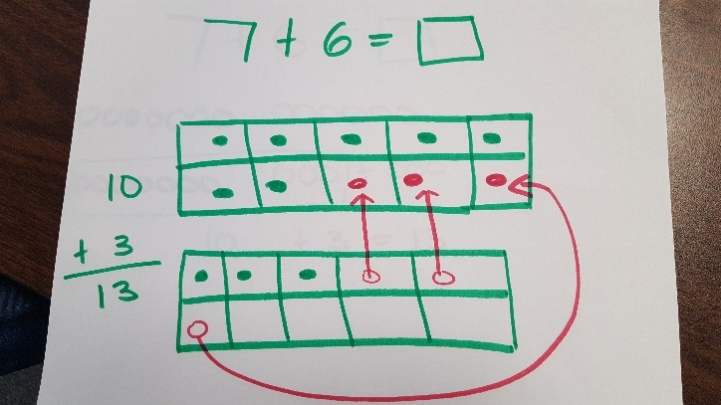 7 + 6 = □
10
+ 3
13